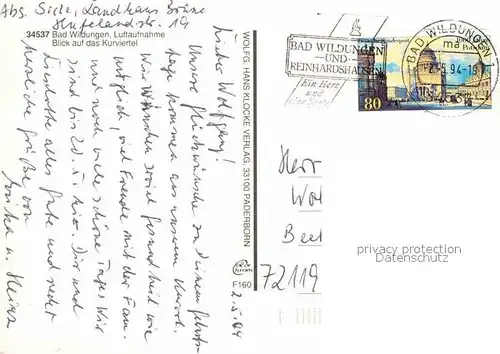 Abs. Siele, Landhaus Börne
Hufelandstr. 19
34537 Bad Wildungen, Luftaufnahme
Blick auf das Kurviertel
Lieber Wolfgang!
Unsere Glückwünsche zu Deinem Geburts-
tage kommen aus unserem Kurort.
Wir wünschen soviel Gesundheit wie
möglich, viel Freude mit der Fam.
und noch viele schöne Tage. Wir
sind bis 20. hier. Dir und
alles Gute und recht
herzliche Grüße von
u. Heinz
WOLFG. HANS KLOCKE VERLAG, 33100 PADERBORN
F160
2.5.94
BAD WILDUNGEN
UND
REINHARDSHAUSEN
Ein Herz
und
80
BAD WILDUNGEN 1
ma
.94-19
Herr
Wol
Beet
72119
privacy protection
Datenschutz